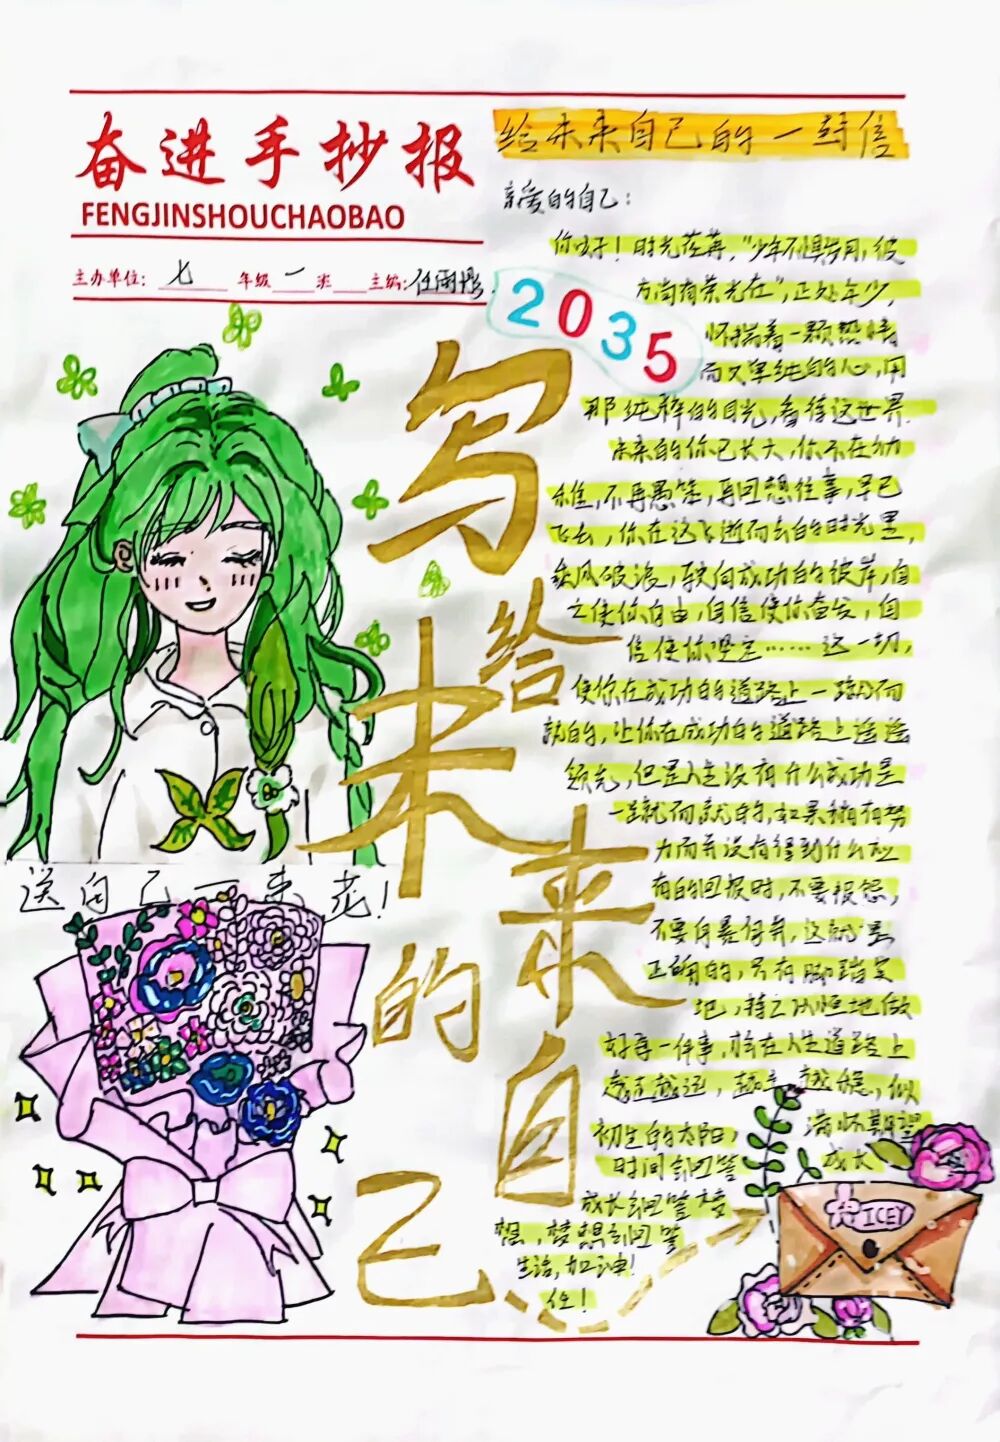 奋进手抄报
FENGJINSHOUCHAOBAO
主办单位: 七 年级 一 班 主编: 任雨彤
给未来自己的一封信
2035
写给未来的自己
送自己一束花!
亲爱的自己:
你好!时光荏苒,"少年不惧岁月,彼
方尚有荣光在",正处年少,
怀揣着一颗热情
而又单纯的心,用
那纯粹的目光,看待这世界.
未来的你已长大,你不在幼
稚,不再愚笨,再回想往事,早已
飞去,你在这飞逝而去的时光里,
乘风破浪,驶向成功的彼岸,自
立使你自由,自信使你奋发,自
信使你坚定……这一切,
使你在成功的道路上一蹴而
就的,让你在成功的道路上遥遥
领先,但是人生没有什么成功是
一蹴而就的,如果稍有努
力而并没有得到什么应
有的回报时,不要报怨,
不要自暴自弃,这就是
正确的,只有脚踏实
地,持之以恒地做
好每一件事,才会在人生道路上
越走越远,越走越稳,似
初生的太阳,满怀期望
时间会回答成长
成长会回答梦
想,梦想会回答
生活,加油!
任!
ICEY